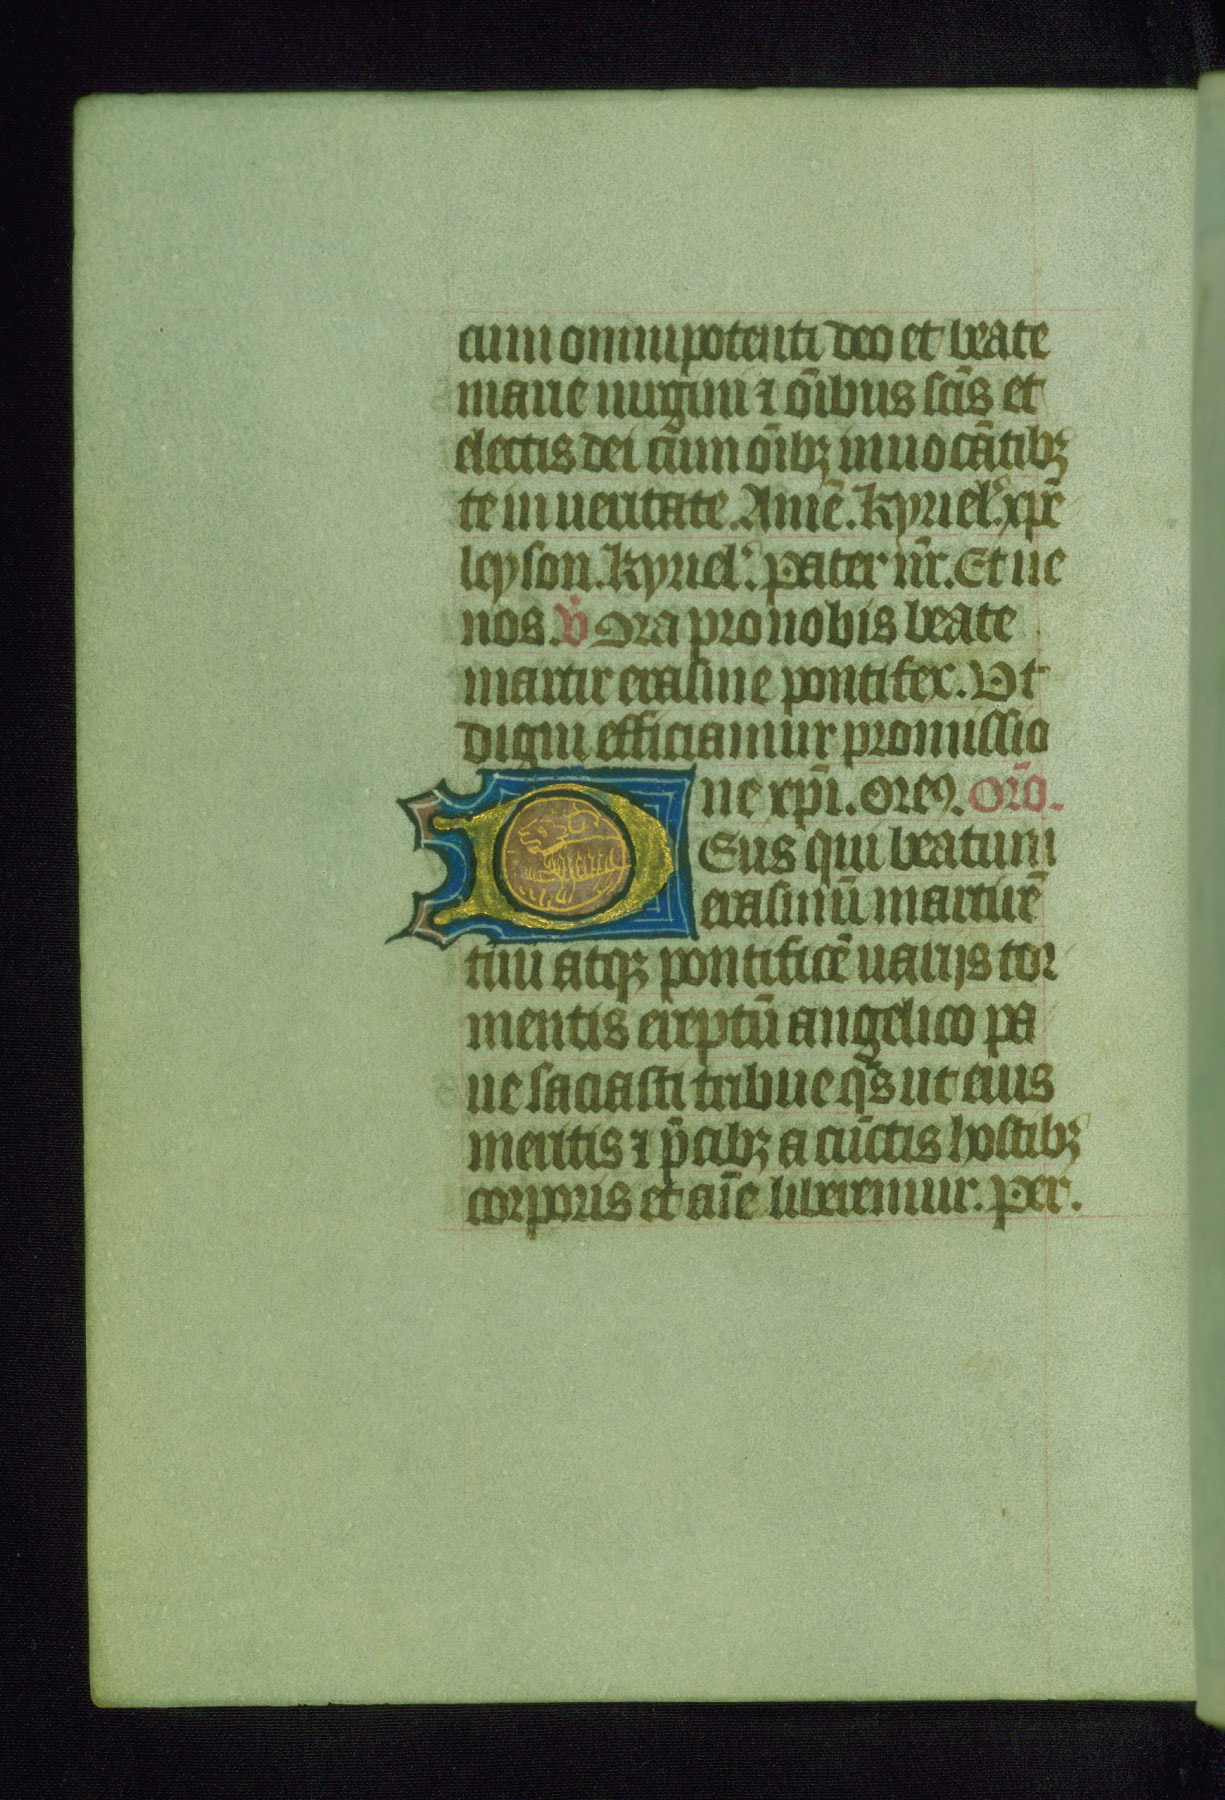 cum omnipotenti deo et beate
marie uirgini ⁊ oībus sc̄is et
electis dei cūm oībꝫ inuocātibꝫ
te in ueritate. Amē. Kyriel'. xp̄e
leyson. Kyriel'. Pater nr̄. Et ne
nos. v̇ Ora pro nobis beate
martir erasme pontifex. Vt
digni efficiamur promissio
ne xp̄i. Oremꝰ. Or̄o.
Deus qui beatum
erasmū martirē
tuu atqꝫ pontificē uarijs tor
mentis ereptū angelico pa
ne saciasti tribue qs̄ ut eius
meritis ⁊ p̄cibꝫ a cūctis hostibꝫ
corporis et aīe liberemur. Per.